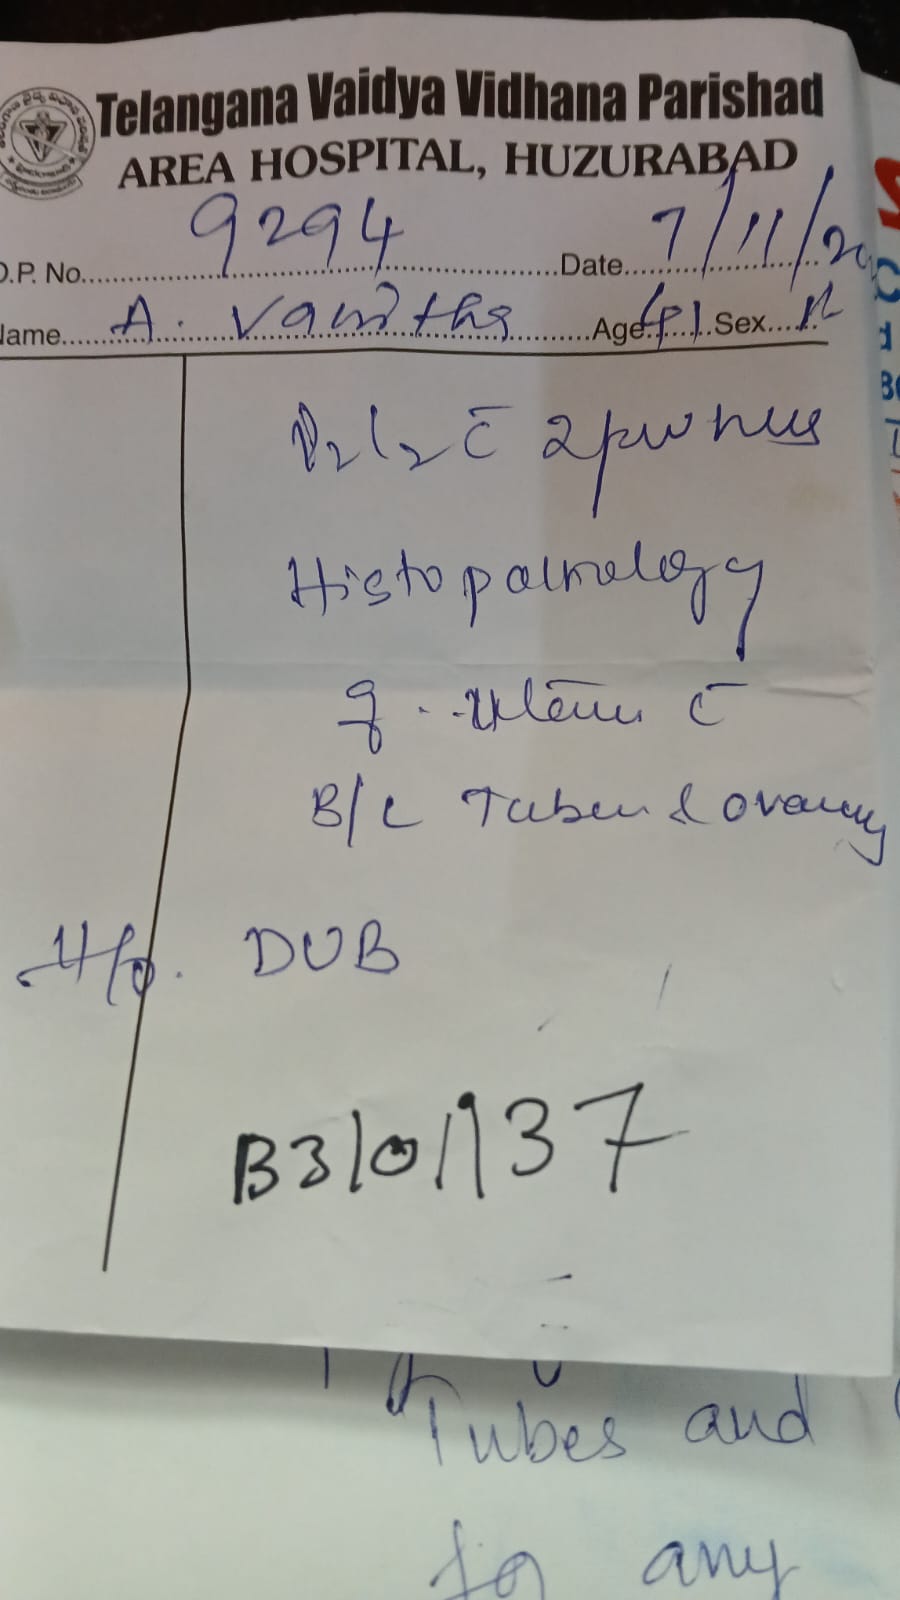 Telangana Vaidya Vidhana Parishad
AREA HOSPITAL, HUZURABAD
O.P. No. 9294 Date 7/11/20
Name A. Vanitha Age 41 Sex
P2L2 c̄ 2 previous
Histopathology
of. uterus c̄
B/L Tubes & ovary
H/o. DUB
B3/0/137
Tubes and
for any